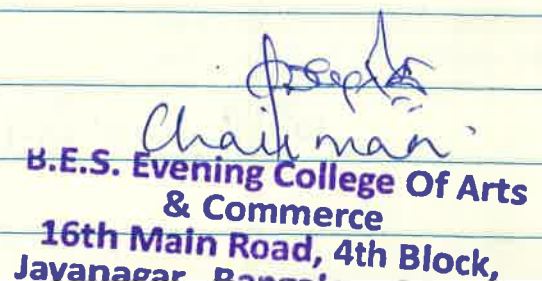 Chairman
B.E.S. Evening College Of Arts
& Commerce
16th Main Road, 4th Block,
Jayanagar,